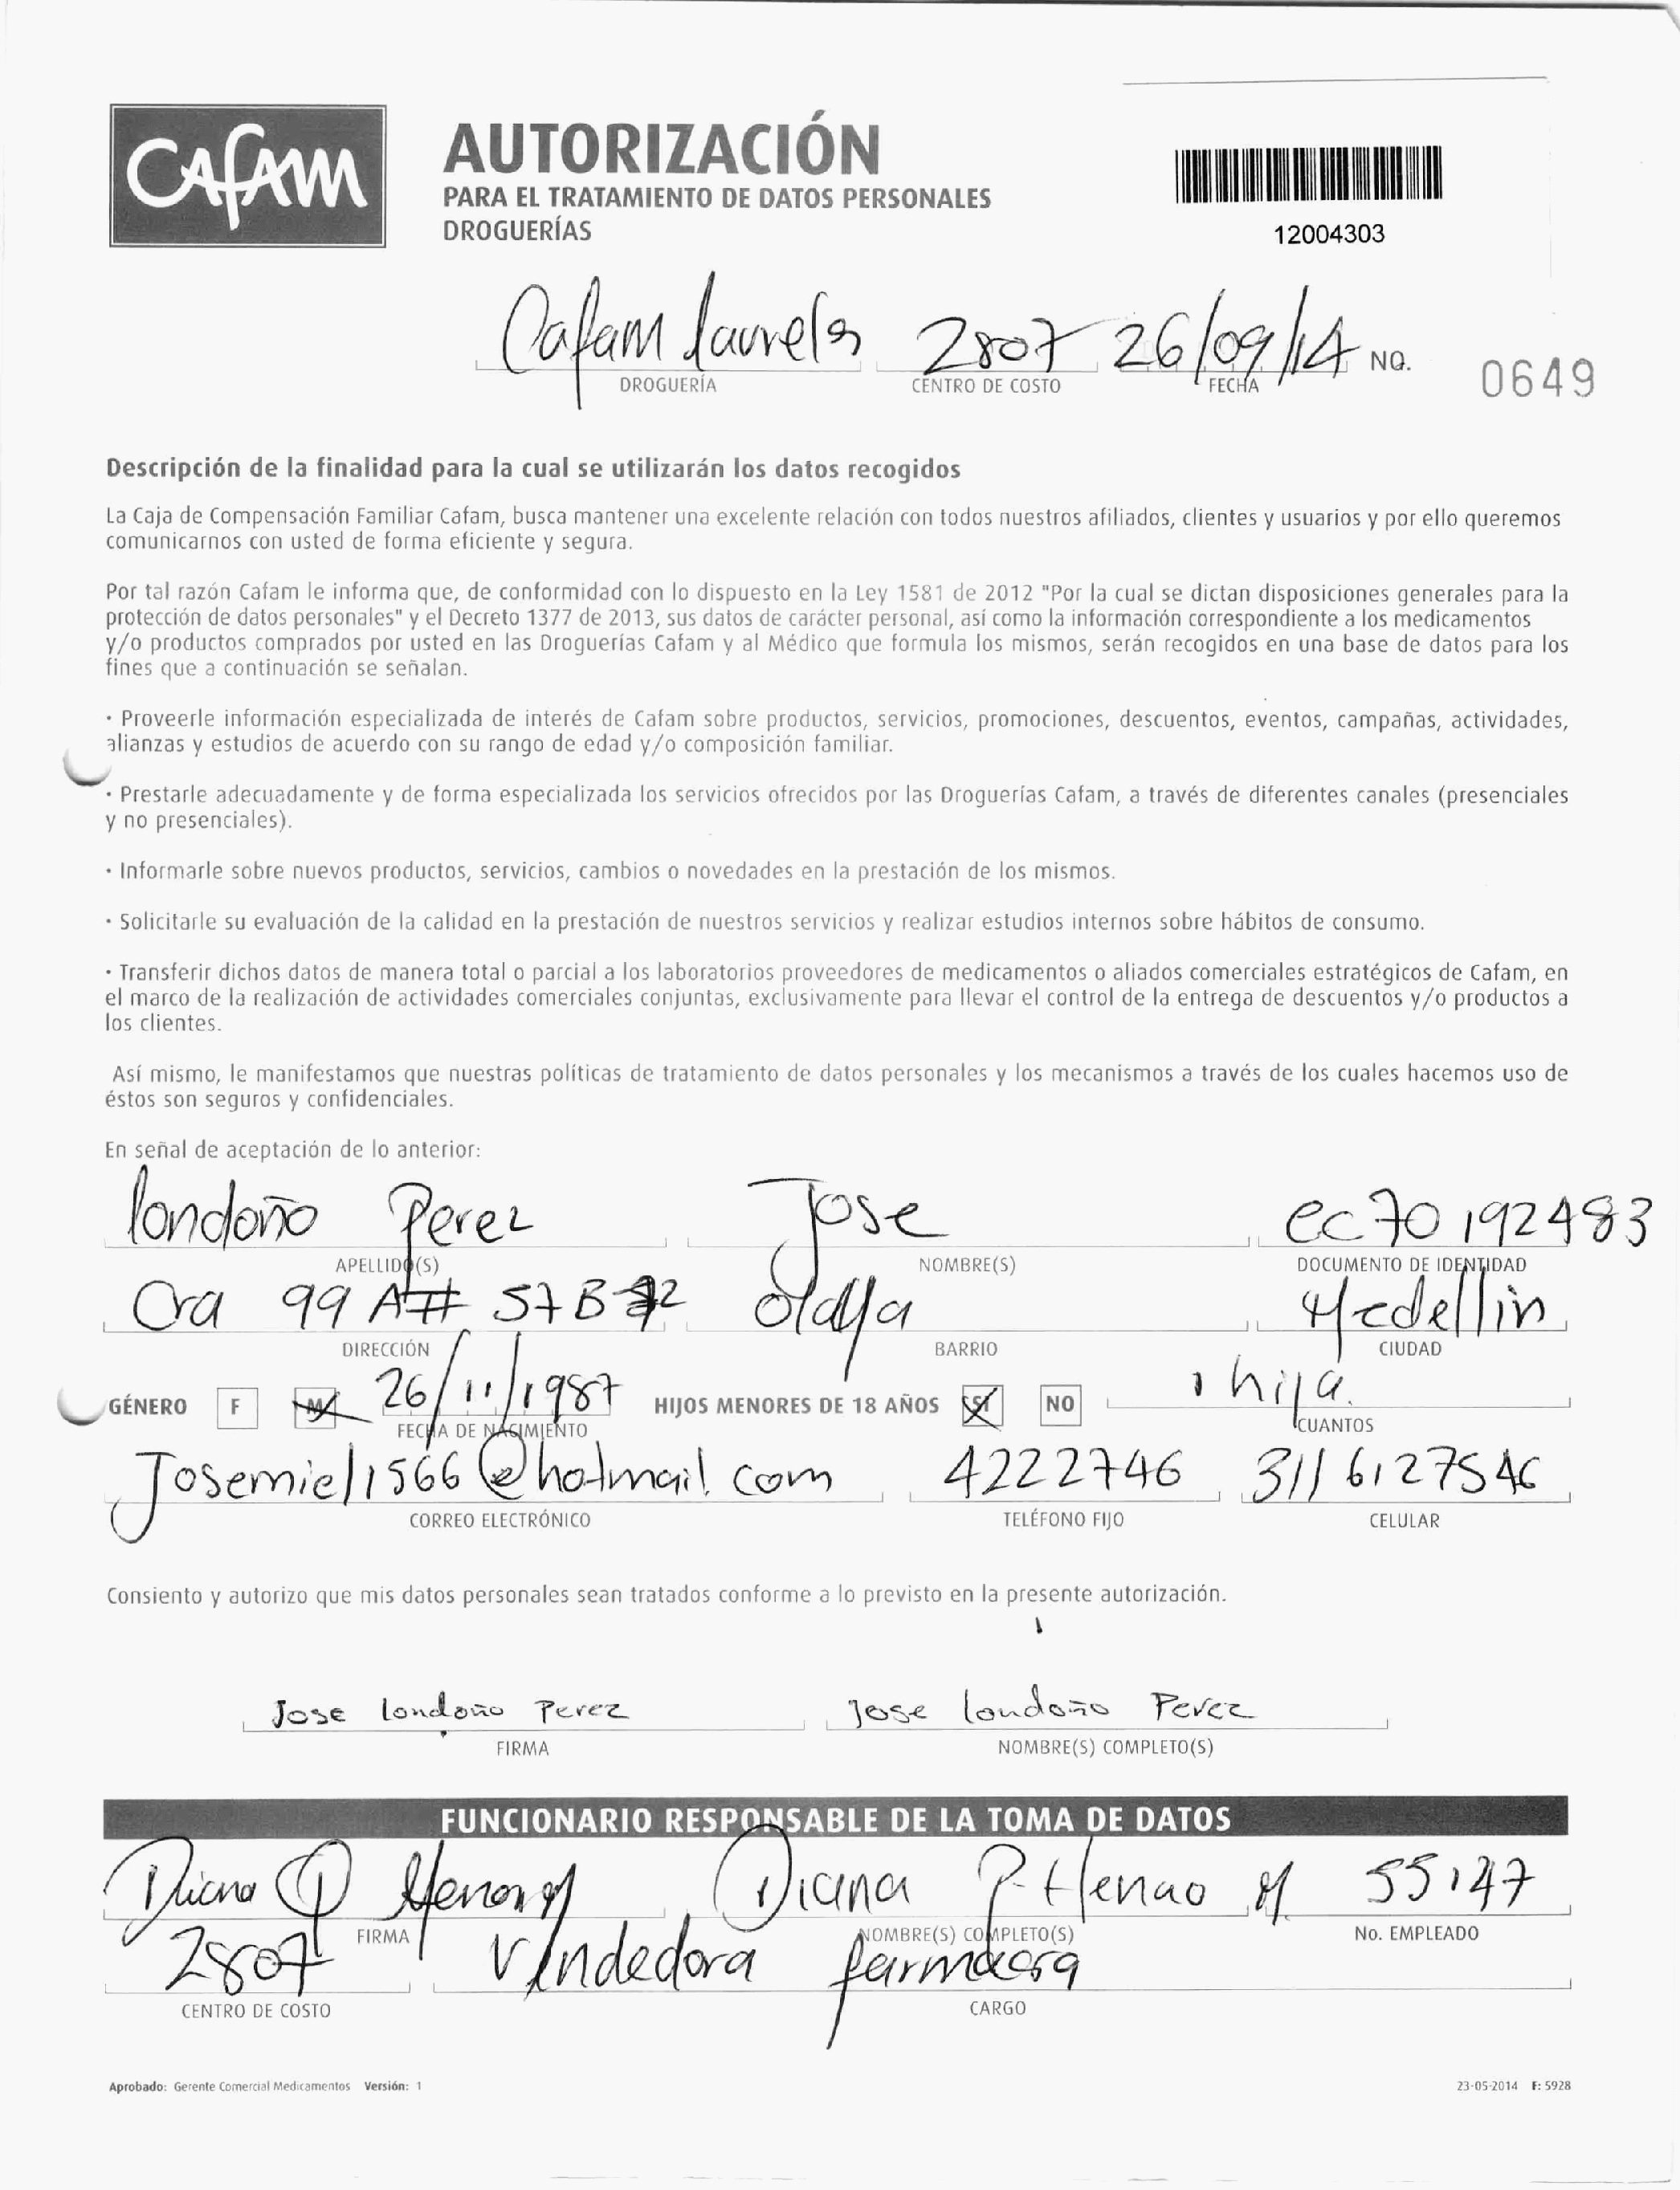 Cafam
AUTORIZACIÓN
PARA EL TRATAMIENTO DE DATOS PERSONALES
DROGUERÍAS
12004303
Cafam laureles 2807 26/09/14 NO. 0649
DROGUERÍA CENTRO DE COSTO FECHA
Descripción de la finalidad para la cual se utilizarán los datos recogidos
La Caja de Compensación Familiar Cafam, busca mantener una excelente relación con todos nuestros afiliados, clientes y usuarios y por ello queremos
comunicarnos con usted de forma eficiente y segura.
Por tal razón Cafam le informa que, de conformidad con lo dispuesto en la Ley 1581 de 2012 "Por la cual se dictan disposiciones generales para la
protección de datos personales" y el Decreto 1377 de 2013, sus datos de carácter personal, así como la información correspondiente a los medicamentos
y/o productos comprados por usted en las Droguerías Cafam y al Médico que formula los mismos, serán recogidos en una base de datos para los
fines que a continuación se señalan.
· Proveerle información especializada de interés de Cafam sobre productos, servicios, promociones, descuentos, eventos, campañas, actividades,
alianzas y estudios de acuerdo con su rango de edad y/o composición familiar.
· Prestarle adecuadamente y de forma especializada los servicios ofrecidos por las Droguerías Cafam, a través de diferentes canales (presenciales
y no presenciales).
· Informarle sobre nuevos productos, servicios, cambios o novedades en la prestación de los mismos.
· Solicitarle su evaluación de la calidad en la prestación de nuestros servicios y realizar estudios internos sobre hábitos de consumo.
· Transferir dichos datos de manera total o parcial a los laboratorios proveedores de medicamentos o aliados comerciales estratégicos de Cafam, en
el marco de la realización de actividades comerciales conjuntas, exclusivamente para llevar el control de la entrega de descuentos y/o productos a
los clientes.
Así mismo, le manifestamos que nuestras políticas de tratamiento de datos personales y los mecanismos a través de los cuales hacemos uso de
éstos son seguros y confidenciales.
En señal de aceptación de lo anterior:
londoño Perez Jose cc 70 192483
APELLIDO(S) NOMBRE(S) DOCUMENTO DE IDENTIDAD
Cra 99 A# 57B Olaya Medellin
DIRECCIÓN BARRIO CIUDAD
GÉNERO F M 26/11/1987 HIJOS MENORES DE 18 AÑOS SÍ NO 1 hija.
FECHA DE NACIMIENTO CUANTOS
Josemiel1566@hotmail.com 4222746 3116127546
CORREO ELECTRÓNICO TELÉFONO FIJO CELULAR
Consiento y autorizo que mis datos personales sean tratados conforme a lo previsto en la presente autorización.
Jose londoño Perez Jose londoño Perez
FIRMA NOMBRE(S) COMPLETO(S)
FUNCIONARIO RESPONSABLE DE LA TOMA DE DATOS
Diana P Henao M Diana P. Henao M 55147
FIRMA NOMBRE(S) COMPLETO(S) No. EMPLEADO
2807 Vendedora farmacia
CENTRO DE COSTO CARGO
Aprobado: Gerente Comercial Medicamentos Versión: 1 23-05-2014 F: 5928